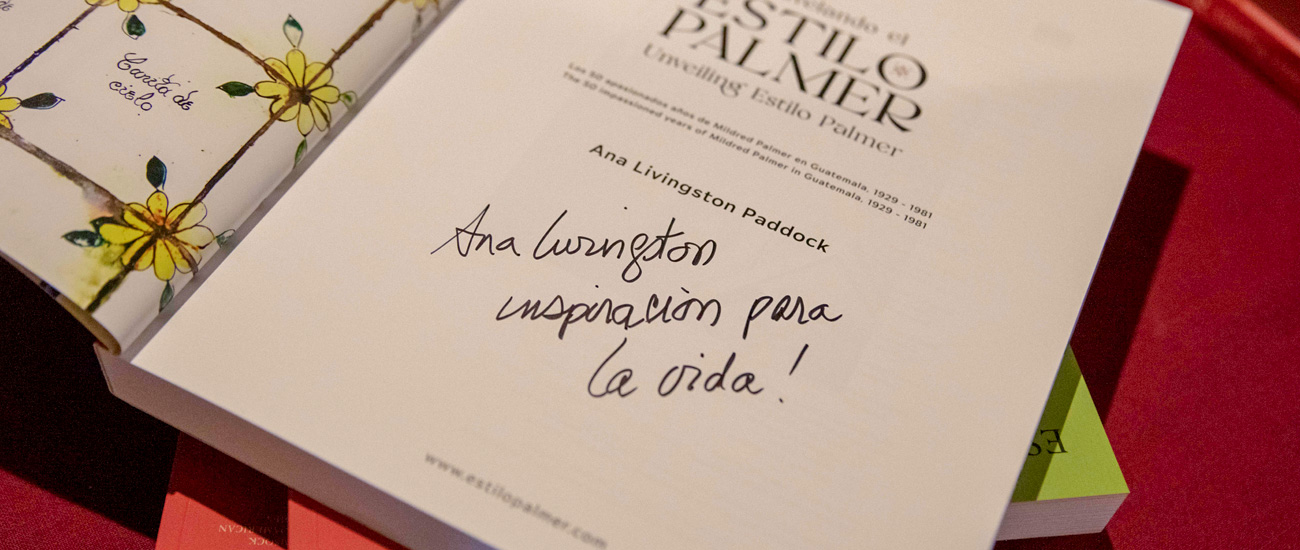 Canita de
cielo
ESTILO
PALMER
Unveiling Estilo Palmer
Los 50 apasionados años de Mildred Palmer en Guatemala. 1929 - 1981
The 50 impassioned years of Mildred Palmer in Guatemala. 1929 - 1981
Ana Livingston Paddock
Ana Livingston
inspiración para
la vida!
www.estilopalmer.com